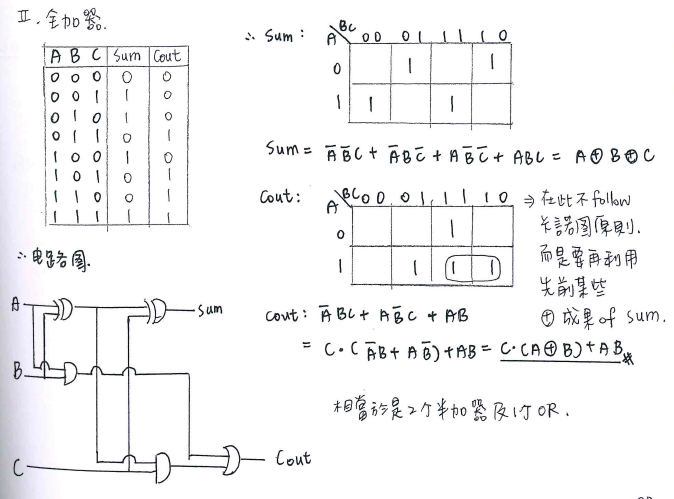 II. 全加器.
A B C Sum Cout
0 0 0 0 0
0 0 1 1 0
0 1 0 1 0
0 1 1 0 1
1 0 0 1 0
1 0 1 0 1
1 1 0 0 1
1 1 1 1 1
∴ Sum:
A\BC 00 01 11 10
0 1 1
1 1 1
Sum = A̅B̅C + A̅BC̅ + AB̅C̅ + ABC = A⊕B⊕C
Cout:
A\BC 00 01 11 10
0 1
1 1 1 1
⇒ 在此不follow
卡諾图原則.
而是要再利用
先前某些
⊕ 成果 of sum.
Cout: A̅BC + AB̅C + AB
= C·(A̅B + AB̅) + AB = C·(A⊕B) + AB #
相當於是2个半加器及1个OR.
∴电路图.
A
Sum
B
C
Cout